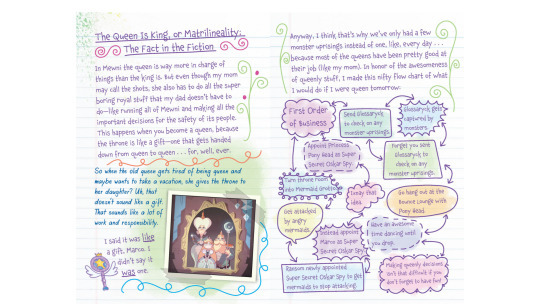 The Queen Is King, or Matrilineality:
The Fact in the Fiction
In Mewni the queen is way more in charge of
things than the king is. But even though my mom
may call the shots, she also has to do all the super
boring royal stuff that my dad doesn't have to
do—like running all of Mewni and making all the
important decisions for the safety of its people.
This happens when you become a queen, because
the throne is like a gift—one that gets handed
down from queen to queen . . . for, well, ever.
So when the old queen gets tired of being queen and
maybe wants to take a vacation, she gives the throne to
her daughter? Uh, that
doesn't sound like a gift.
That sounds like a lot of
work and responsibility.
I said it was like
a gift, Marco. I
didn't say it
was one.
Anyway, I think that's why we've only had a few
monster uprisings instead of one, like, every day . . .
because most of the queens have been pretty good at
their job (like my mom). In honor of the awesomeness
of queenly stuff, I made this nifty flow chart of what
I would do if I were queen tomorrow:
First Order
of Business
Send Glossaryck
to check on any
monster uprisings.
Glossaryck gets
captured by
monsters.
Appoint Princess
Pony Head as Super
Secret Oskar Spy.
Forget you sent
Glossaryck to
check on any
monster uprisings.
Turn throne room
into Mermaid Grotto.
Nixnay that
idea.
Go hang out at the
Bounce Lounge with
Pony Head.
Get attacked
by angry
mermaids.
Instead appoint
Marco as Super
Secret Oskar Spy.
Have an awesome
time dancing until
you drop.
Ransom newly appointed
Super Secret Oskar Spy to get
mermaids to stop attacking.
Making queenly decisions
isn't that difficult if you
don't forget to have fun!